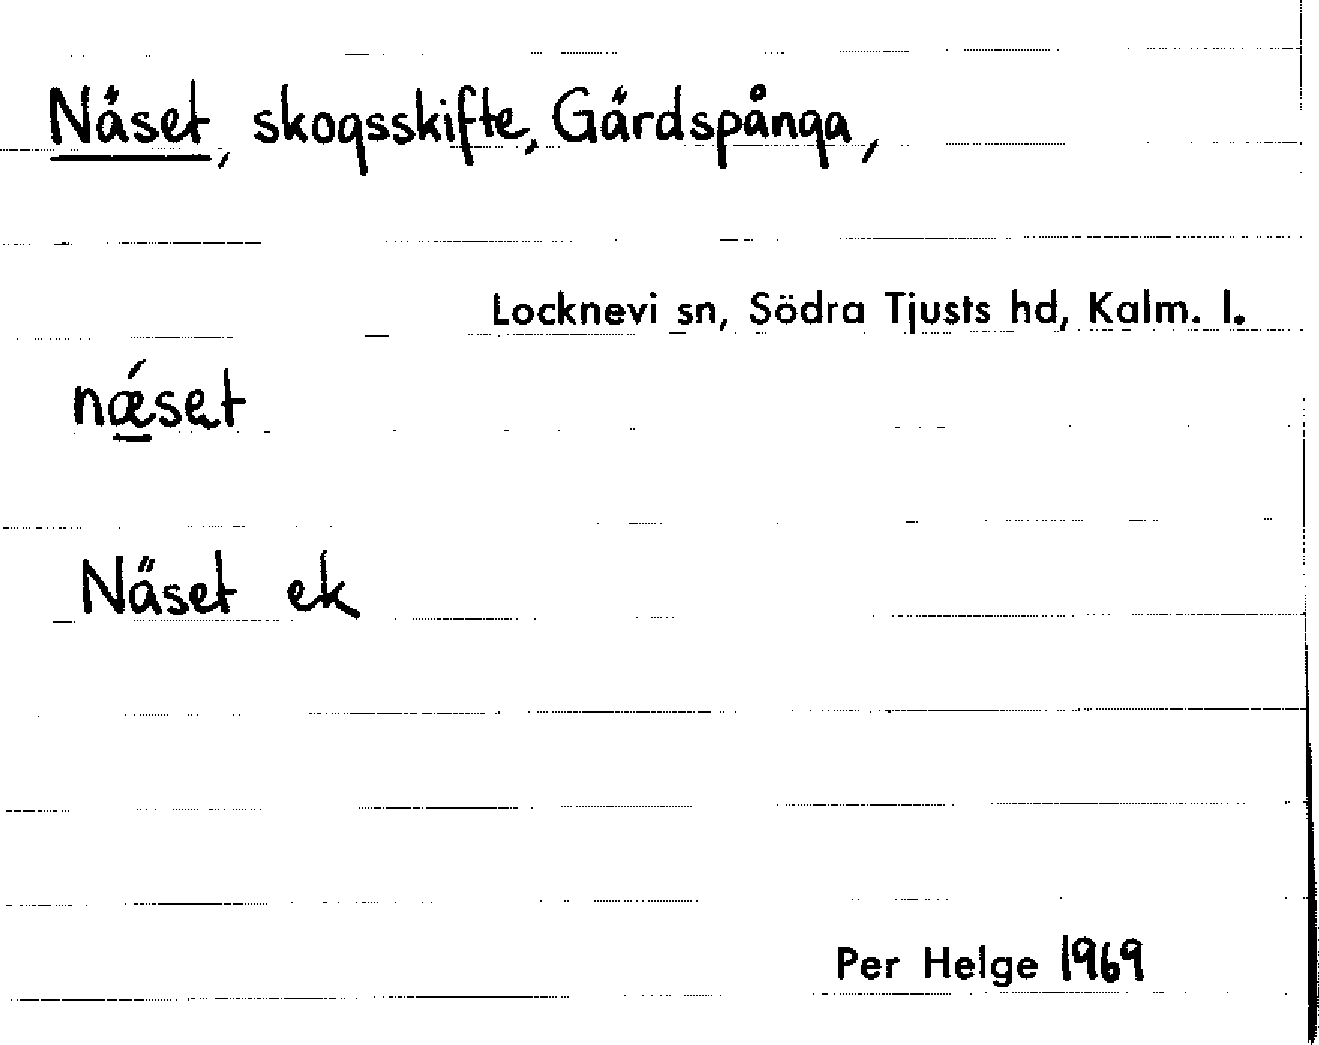 Näset, skogsskifte, Gärdspånga,
Locknevi sn, Södra Tjusts hd, Kalm. l.
nǽ̱sət
Näset ek
Per Helge 1969